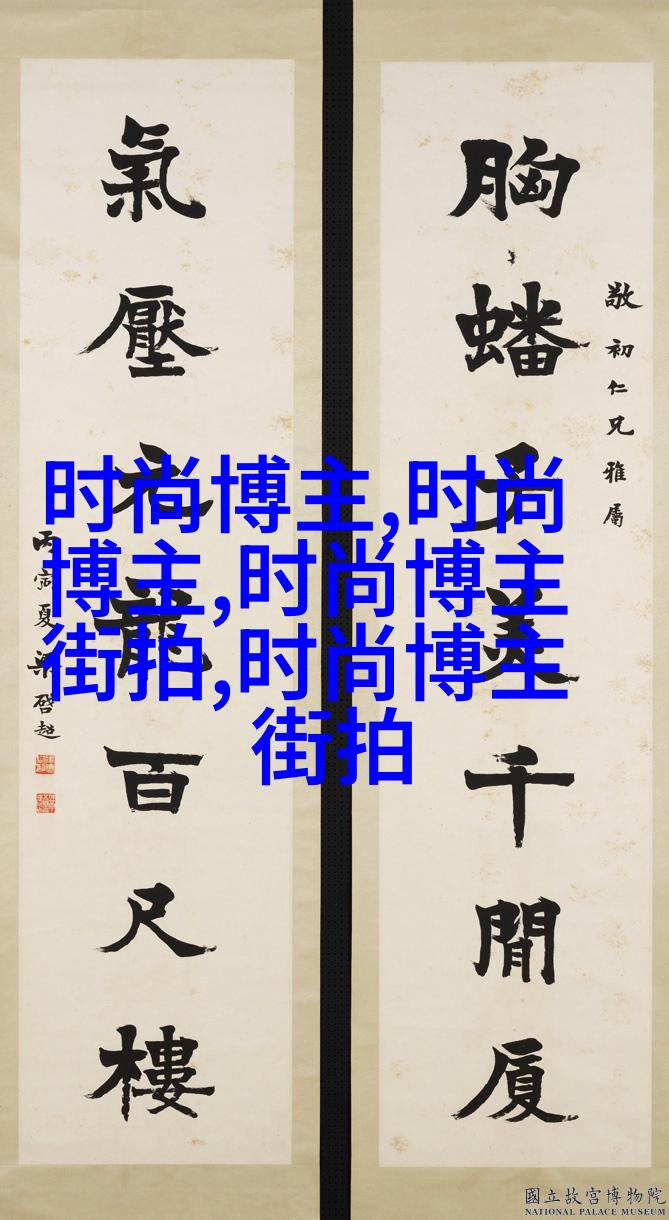 敬初仁兄雅屬
胸蟠子美千閒厦
氣壓元龍百尺樓
丙寅夏梁啓超
时尚博主,时尚
博主,时尚博主
街拍,时尚博主
街拍
國立故宮博物院
NATIONAL PALACE MUSEUM